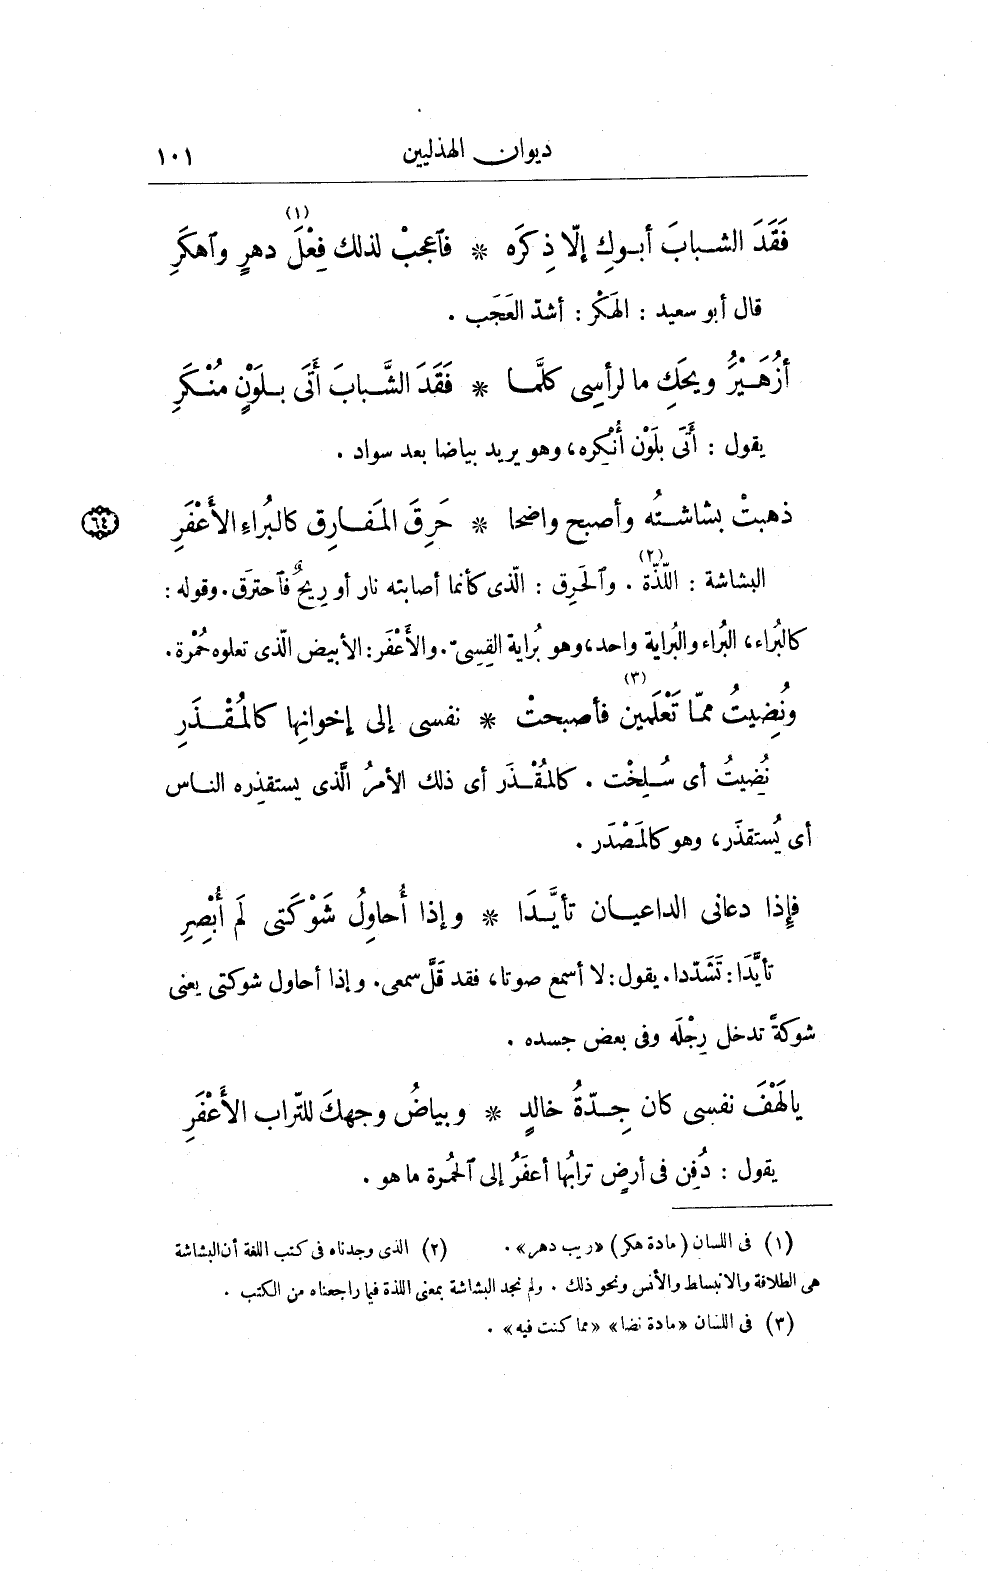 ديوان الهذليين ١٠١
فَقَدَ الشبابَ أبوكِ إلّا ذِكرَه * فٱعجبْ لذلك فِعْلَ (١) دهرٍ وٱهكَرِ
قال أبو سعيد : الهَكْر : أشدّ العَجَب .
أزُهَيْرُ ويحَكِ ما لرأسِى كلَّما * فَقَدَ الشَّبابَ أتَى بلَوْنٍ مُنْكَرِ
يقول : أَتَى بلَوْن أُنْكِره، وهو يريد بياضا بعد سواد .
ذهبتْ بشاشتُه وأصبح واضحا * حَرِقَ المَفارِق كالبُراءِ الأَعْفَرِ ٦٤
البشاشة : اللّذّة (٢) . وٱلحَرِق : الّذى كأنما أصابته نار أو رِيحٌ فٱحترَق. وقوله :
كالبُراء، البُراء والبُراية واحد، وهو بُراية القِسِىّ. والأَعْفَر: الأبيض الّذى تعلوه حُمْرة.
ونُضِيتُ ممّا تَعْلَمين (٣) فأصبحتْ * نفسى إلى إخوانِها كالمُقْذَرِ
نُضِيتُ أى سُلِخْت . كالمُقْذَر أى ذلك الأمرُ الَّذى يستقذِره الناس
أى يُستقذَر، وهو كالمَصْدَر .
فإِذا دعانى الداعيان تأيَّدَا * وإذا أُحاوِلُ شَوْكَتى لَم أُبْصِرِ
تأيَّدَا: تَشَدّدا. يقول: لا أسمع صوتا، فقد قَلَّ سمعى. وإذا أحاول شوكتى يعنى
شوكةً تدخل رِجْلَه وفى بعض جسده .
يالَهْفَ نفسِى كان جِدّةُ خالدٍ * وبياضُ وجهِكَ للتّراب الأَعْفَرِ
يقول : دُفِن فى أرضٍ ترابُها أعفَرُ إلى ٱلحُمرة ما هو .
(١) فى اللسان (مادة هكر) «ريب دهر». (٢) الذى وجدناه فى كتب اللغة أن البشاشة
هى الطلاقة والانبساط والأنس ونحو ذلك . ولم نجد البشاشة بمعنى اللذة فيما راجعناه من الكتب .
(٣) فى اللسان «مادة نضا» «مما كنت فيه» .